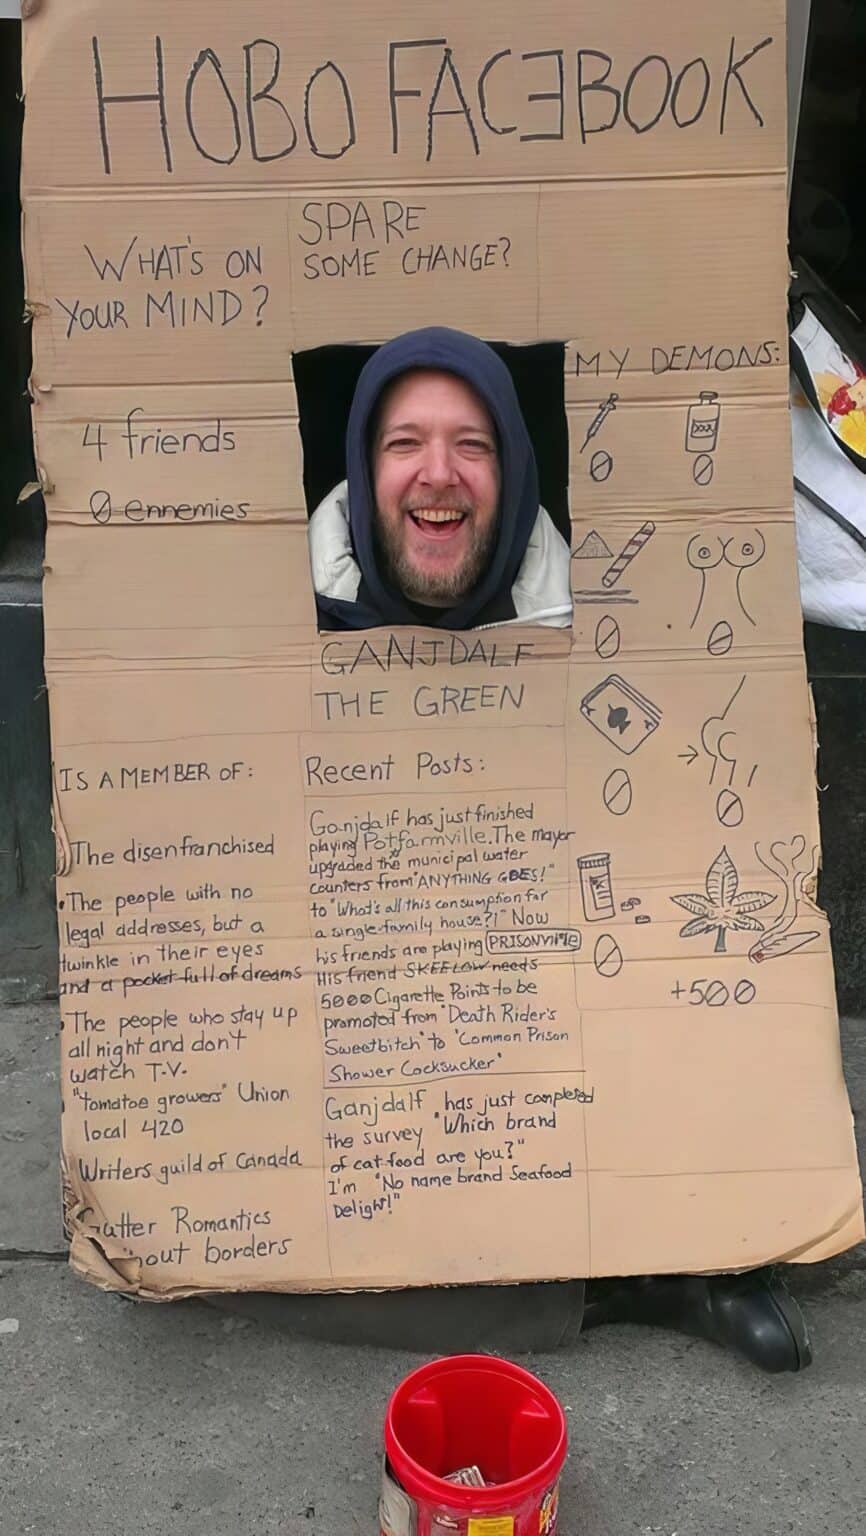 HOBO FACEBOOK
WHAT'S ON
YOUR MIND?
SPARE
SOME CHANGE?
4 friends
0 ennemies
MY DEMONS:
XXX
0
0
0
0
0
0
0
+500
GANJDALF
THE GREEN
IS A MEMBER OF:
The disenfranchised
•The people with no
legal addresses, but a
twinkle in their eyes
and a pocket full of dreams
•The people who stay up
all night and don't
watch T.V.
"tomatoe growers" Union
local 420
Writers guild of Canada
Gutter Romantics
hout borders
Recent Posts:
Ganjdalf has just finished
playing Potfarmville. The mayor
upgraded the municipal water
counters from "ANYTHING GOES!"
to "What's all this consumption for
a single-family house?!" Now
his friends are playing PRISONVILLE
His friend SKEELOW needs
5000 Cigarette Points to be
promoted from "Death Rider's
Sweetbitch" to "Common Prison
Shower Cocksucker"
Ganjdalf has just completed
the survey "Which brand
of cat food are you?"
I'm "No name brand Seafood
Delight!"